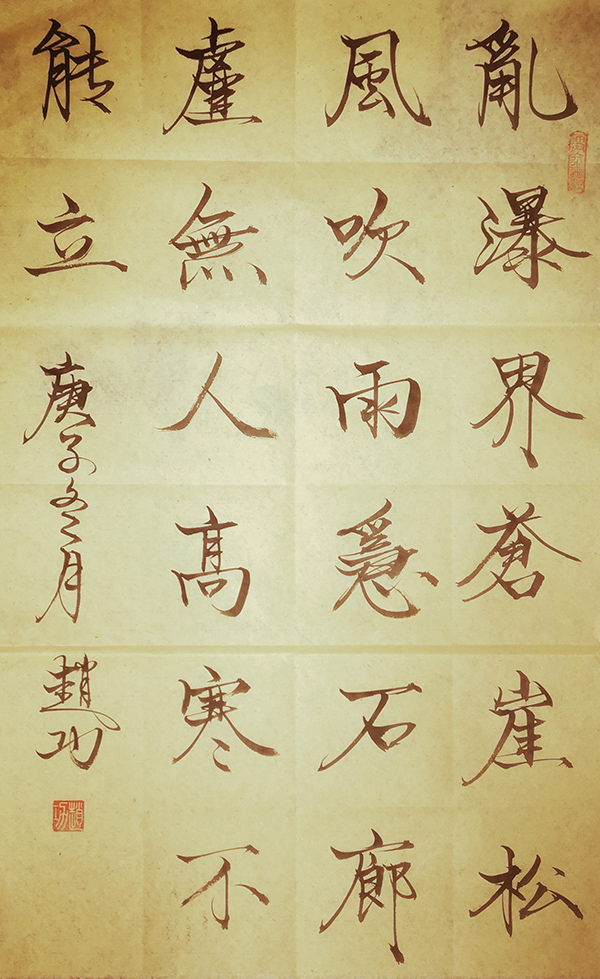 亂瀑界蒼崖松
風吹雨急石廊
虛無人高寒不
能立
庚子冬月 趙功
趙功